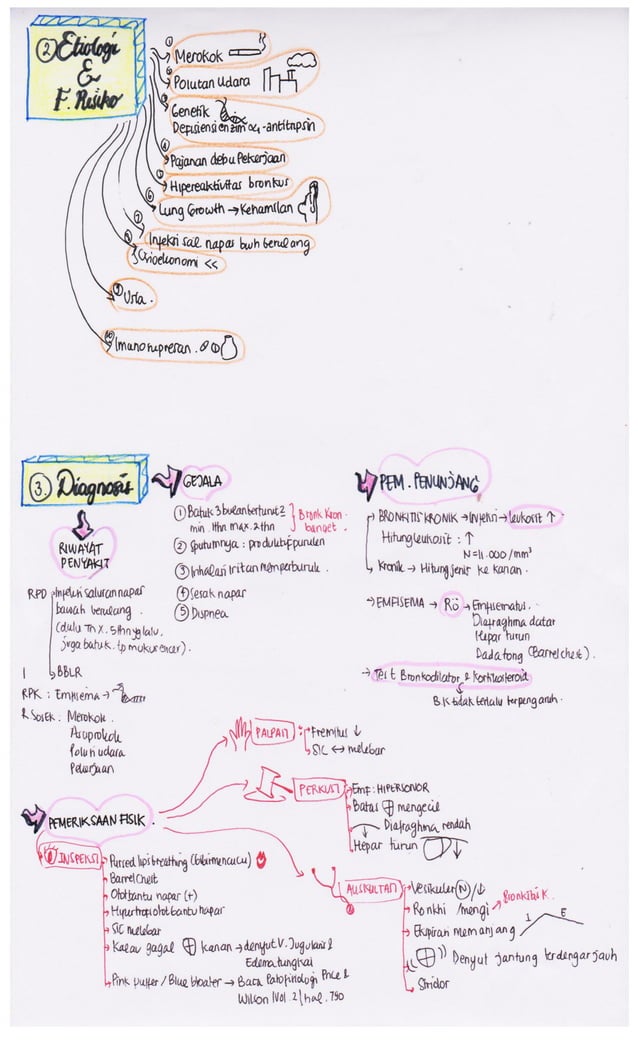 ② Etiologi
&
F. Risiko
① Merokok
② Polutan Udara
③ Genetik
Defisiensi enzim α1-antitripsin
④ Pajanan debu Pekerjaan
⑤ Hipereaktivitas bronkus
⑥ Lung Growth → Kehamilan
⑦ Infeksi sal napas bwh berulang
⑧ Sosioekonomi <<
⑨ Usia.
⑩ Imunosupresan.
③. Diagnosis
RIWAYAT
PENYAKIT
RPD → Infeksi saluran napas
bawah berulang
(dulu Tn X. 5thn yg lalu,
juga batuk. tp mukus encer).
→ BBLR
RPK : Emfisema →
R Sosek : Merokok.
Asap rokok
Polusi udara
Pekerjaan
GEJALA
① Batuk 3 bulan berturut2
min. 1thn max. 2thn
Bronk Kron.
banget.
② Sputumnya : produktif, purulen
③ Inhalasi Iritan memperburuk.
④ Sesak napas
⑤ Dispnea
PEM. PENUNJANG
BRONKITIS KRONIK → Infeksi → leukosit ↑
Hitung leukosit : ↑
N=11.000/mm³
Kronik → Hitung jenis ke kanan.
→ EMFISEMA → Rö → Emfisematus.
Diafraghma datar
Hepar turun
Dada tong (Barrel chest).
→ Test Bronkodilator & Kortikosteroid
B.K tidak terlalu terpengaruh.
PEMERIKSAAN FISIK.
① INSPEKSI
Pursed lips breathing (bibir mencucu)
Barrel Chest
Otot bantu napas (+)
Hipertrofi otot bantu napas
SIC melebar
Kalau gagal kanan → denyut V. Jugularis &
Edema tungkai
Pink puffer / Blue bloater → Baca Patofisiologi Price &
Wilson Vol. 2 / hal. 790
PALPASI :
Fremitus ↓
SIC ↔ melebar
PERKUSI
Emf : HIPERSONOR
Batas mengecil
Diafraghma rendah
Hepar turun ↓
AUSKULTASI
Vesikuler Ⓝ/↓
Ronkhi / mengi → Bronkitis K.
Ekspirasi memanjang I E
Denyut jantung terdengar jauh
Stridor